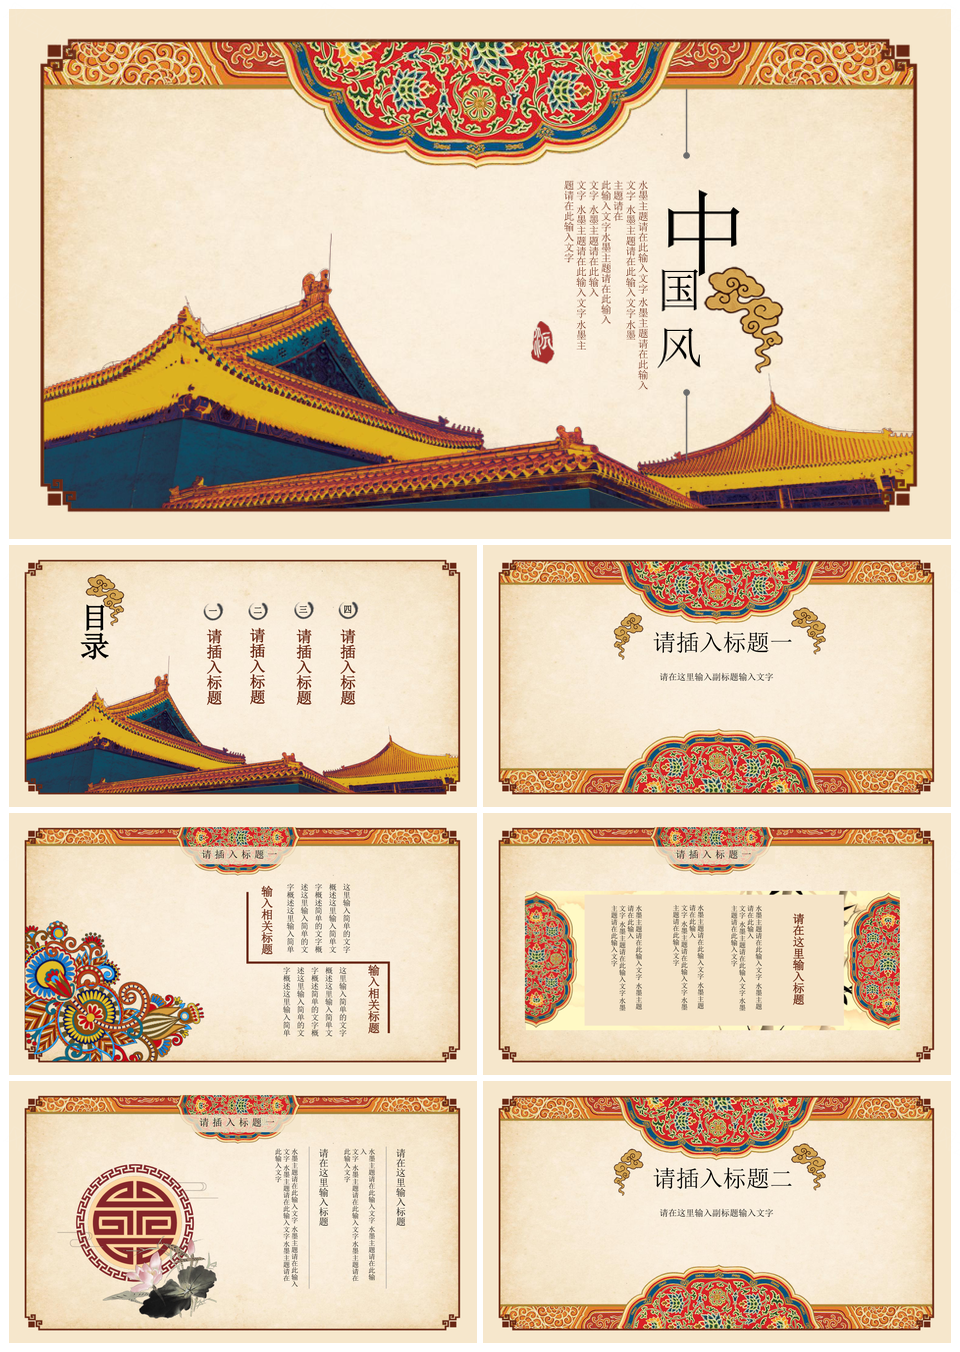 中
国
风
水墨主题请在此输入文字 水墨主题请在此输入
文字 水墨主题请在此输入文字水墨
主题请在
此输入文字水墨主题请在此输入
文字 水墨主题请在此输入
文字 水墨主题请在此输入文字水墨主
题请在此输入文字
目录
一
请插入标题
二
请插入标题
三
请插入标题
四
请插入标题
请插入标题一
请在这里输入副标题输入文字
请插入标题一
输入相关标题
这里输入简单的文字
概述这里输入简单文
字概述简单的文字概
述这里输入简单的文
字概述这里输入简单
输入相关标题
这里输入简单的文字
概述这里输入简单文
字概述简单的文字概
述这里输入简单的文
字概述这里输入简单
请插入标题一
请在这里输入标题
水墨主题请在此输入文字 水墨主题
请在输入
文字 水墨主题请在此输入文字 水墨
主题请在此输入文字
水墨主题请在此输入文字 水墨主题
请在输入
文字 水墨主题请在此输入文字 水墨
主题请在此输入文字
水墨主题请在此输入文字 水墨主题
请在输入
文字 水墨主题请在此输入文字 水墨
主题请在此输入文字
请插入标题一
请在这里输入标题
水墨主题请在此输入文字 水墨主题请在此输
入
文字 水墨主题请在此输入文字 水墨主题请在
此输入文字
请在这里输入标题
水墨主题请在此输入文字 水墨主题请在此输入
文字 水墨主题请在此输入文字 水墨主题请在
此输入文字
请插入标题二
请在这里输入副标题输入文字